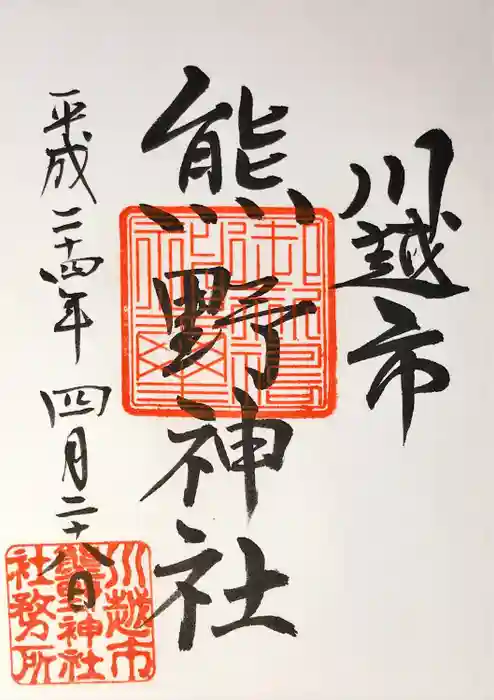 川越市
熊野神社
平成二十四年 四月二十八日
川越市
熊野神社
社務所